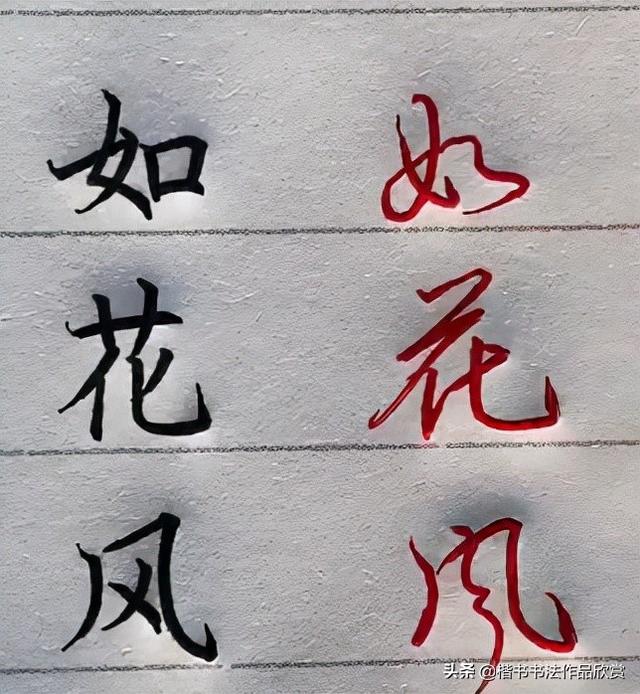 如 如
花 花
风 风
头条 @楷书书法作品欣赏